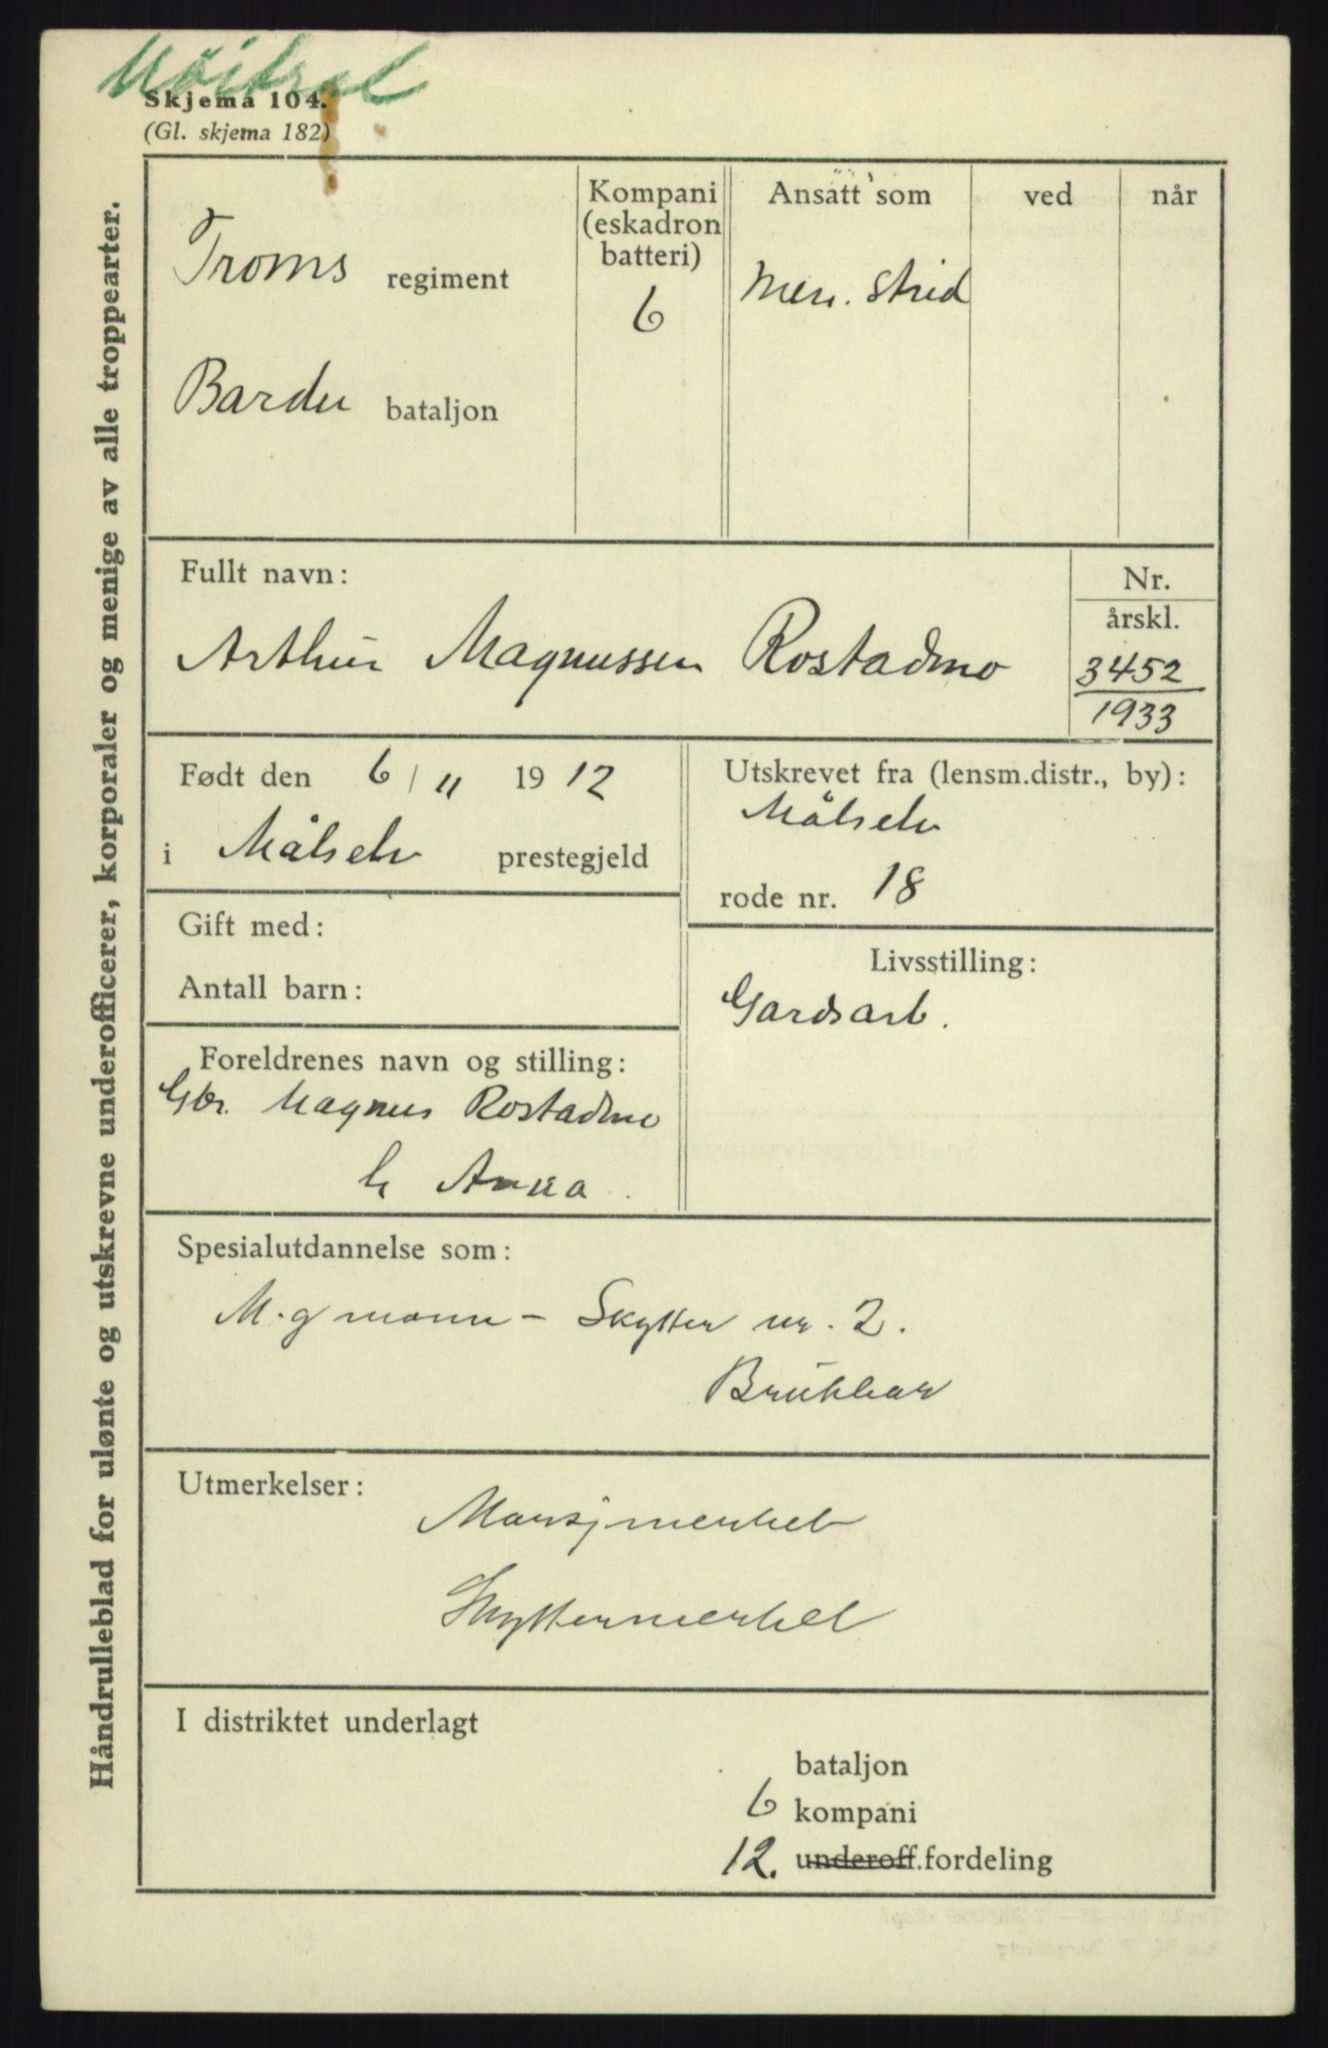 Nöitral
Skjema 104.
(Gl. skjema 182)
Håndrulleblad for ulønte og utskrevne underofficerer, korporaler og menige av alle troppearter.
Troms regiment
Bardu bataljon
Kompani
(eskadron
batteri)
6
Ansatt som
Men. strid
ved
når
Fullt navn:
Arthur Magnussen Rostadmo
Nr.
årskl.
3452
1933
Født den 6/11 1912
i Målselv prestegjeld
Utskrevet fra (lensm.distr., by):
Målselv
rode nr. 18
Gift med:
Antall barn:
Livsstilling:
Gardsarb.
Foreldrenes navn og stilling:
Gbr. Magnus Rostadmo
h Anna.
Spesialutdannelse som:
M.g mann - Skytter nr. 2.
Brukbar
Utmerkelser:
Marsjmerket
Skyttermerket
I distriktet underlagt
bataljon
6 kompani
12. underoff.fordeling